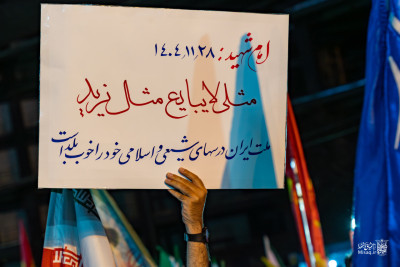 امام شهید: ۱۴۰۴,۱۱,۲۸
مثلی لایبایع مثال یزید
ملت ایران درسهای شیعی و اسلامی خود را خوب بلد است
Misaq.ir